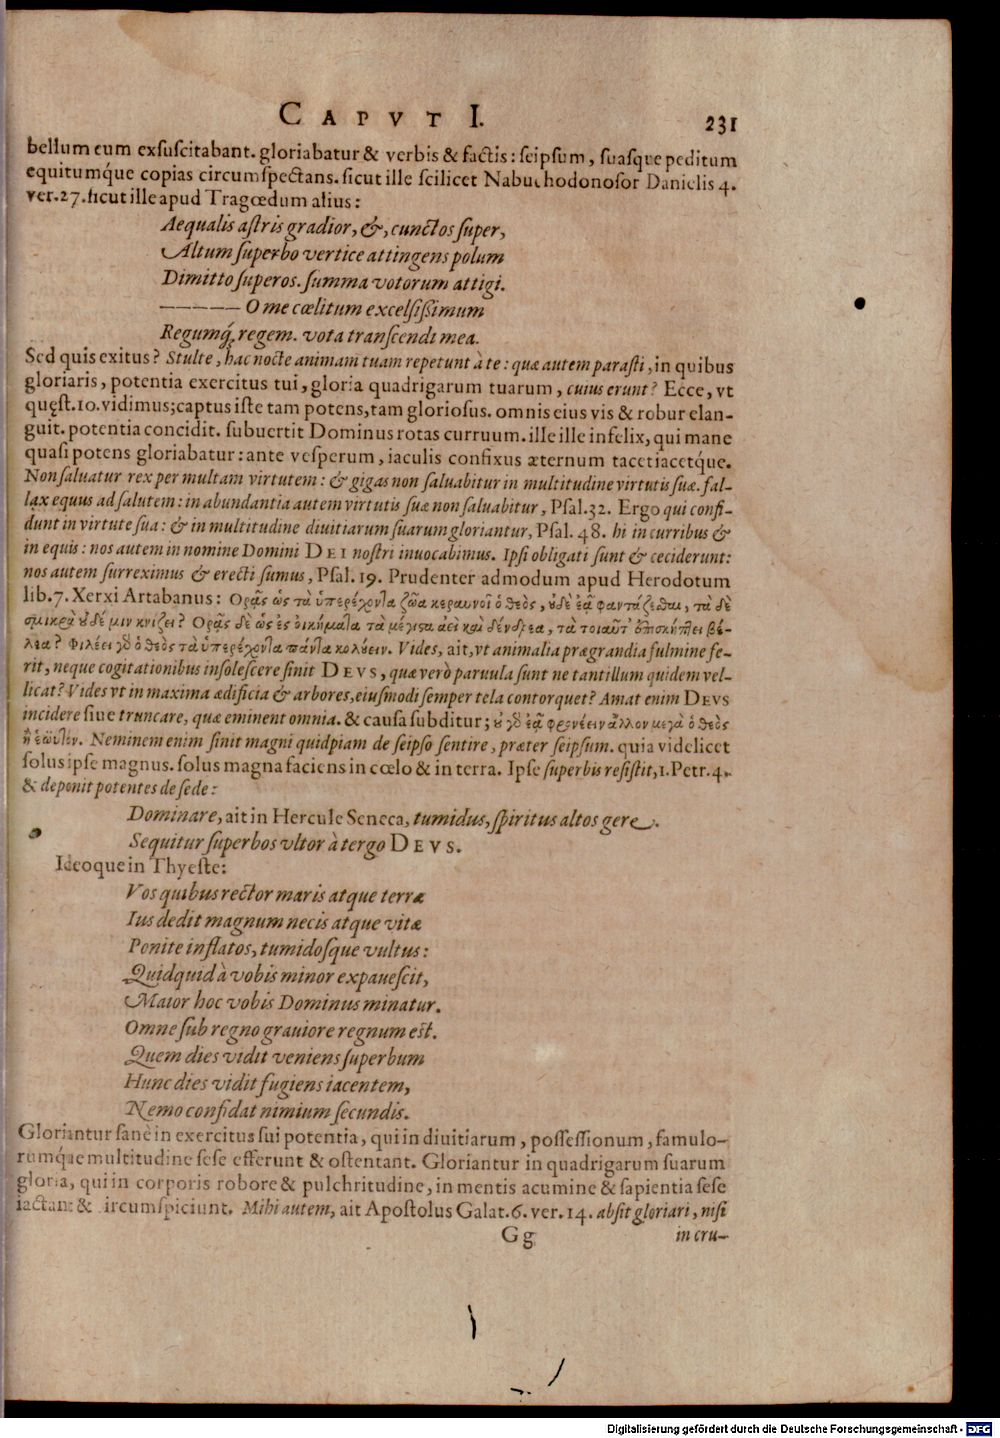 CAPVT I. 231
bellum eum exsuscitabant. gloriabatur & verbis & factis: seipsum, suasque peditum
equitumq́ue copias circumspectans. sicut ille scilicet Nabuchodonosor Danielis 4.
ver. 27. sicut ille apud Tragœdum alius:
Aequalis astris gradior, &, cunctos super,
Altum superbo vertice attingens polum
Dimitto superos. summa votorum attigi.
————— O me cœlitum excelsissimum
Regumq́; regem. vota transcendi mea.
Sed quis exitus? Stulte, hac nocte animam tuam repetunt à te: quæ autem parasti, in quibus
gloriaris, potentia exercitus tui, gloria quadrigarum tuarum, cuius erunt? Ecce, vt
quęst. 10. vidimus; captus iste tam potens, tam gloriosus. omnis eius vis & robur elan-
guit. potentia concidit. subuertit Dominus rotas curruum. ille ille infelix, qui mane
quasi potens gloriabatur: ante vesperum, iaculis confixus æternum tacet iacetq́ue.
Non saluatur rex per multam virtutem: & gigas non saluabitur in multitudine virtutis suæ. fal-
lax equus ad salutem: in abundantia autem virtutis suæ non saluabitur, Psal. 32. Ergo qui confi-
dunt in virtute sua: & in multitudine diuitiarum suarum gloriantur, Psal. 48. hi in curribus &
in equis: nos autem in nomine Domini DEI nostri inuocabimus. Ipsi obligati sunt & ceciderunt:
nos autem surreximus & erecti sumus, Psal. 19. Prudenter admodum apud Herodotum
lib. 7. Xerxi Artabanus: Ορᾷς ὡς τὰ ὑπερέχοντα ζῶα κεραυνοῖ ὁ θεὸς, οὐδὲ ἐᾷ φαντάζεσθαι, τὰ δὲ
σμικρὰ οὐδέ μιν κνίζει? Ορᾷς δὲ ὡς ἐς οἰκήματα τὰ μέγιστα ἀεὶ καὶ δένδρεα, τὰ τοιαῦτ᾽ ἀποσκήπτει βέ-
λεα? Φιλέει γὰρ ὁ θεὸς τὰ ὑπερέχοντα πάντα κολούειν. Vides, ait, vt animalia prægrandia fulmine fe-
rit, neque cogitationibus insolescere sinit DEVS, quæ verò paruula sunt ne tantillum quidem vel-
licat? Vides vt in maxima ædificia & arbores, eiusmodi semper tela contorquet? Amat enim DEVS
incidere siue truncare, quæ eminent omnia. & causa subditur; οὐ γὰρ ἐᾷ φρονέειν ἄλλον μεγὰ ὁ θεὸς
ἢ ἑωϋτὸν. Neminem enim sinit magni quidpiam de seipso sentire, præter seipsum. quia videlicet
solus ipse magnus. solus magna faciens in cœlo & in terra. Ipse superbis resistit, 1. Petr. 4.
& deponit potentes de sede:
Dominare, ait in Hercule Seneca, tumidus, spiritus altos gere.
Sequitur superbos vltor à tergo DEVS.
Ideoque in Thyeste:
Vos quibus rector maris atque terræ
Ius dedit magnum necis atque vitæ
Ponite inflatos, tumidosque vultus:
Quidquid à vobis minor expauescit,
Maior hoc vobis Dominus minatur.
Omne sub regno grauiore regnum est.
Quem dies vidit veniens superbum
Hunc dies vidit fugiens iacentem,
Nemo confidat nimium secundis.
Gloriantur sanè in exercitus sui potentia, qui in diuitiarum, possessionum, famulo-
rumq́ue multitudine sese efferunt & ostentant. Gloriantur in quadrigarum suarum
gloria, qui in corporis robore & pulchritudine, in mentis acumine & sapientia sese
iactant & circumspiciunt. Mihi autem, ait Apostolus Galat. 6. ver. 14. absit gloriari, nisi
Gg in cru-
Digitalisierung gefördert durch die Deutsche Forschungsgemeinschaft - DFG